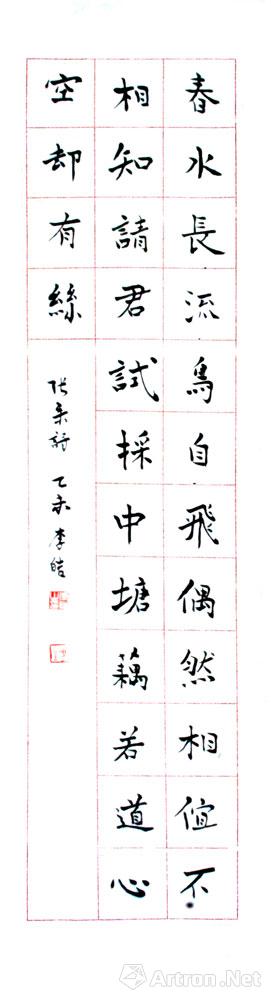 春水長流鳥自飛偶然相值不
相知請君試採中塘藕若道心
空却有絲
采詩 乙 李皓
Artron.Net